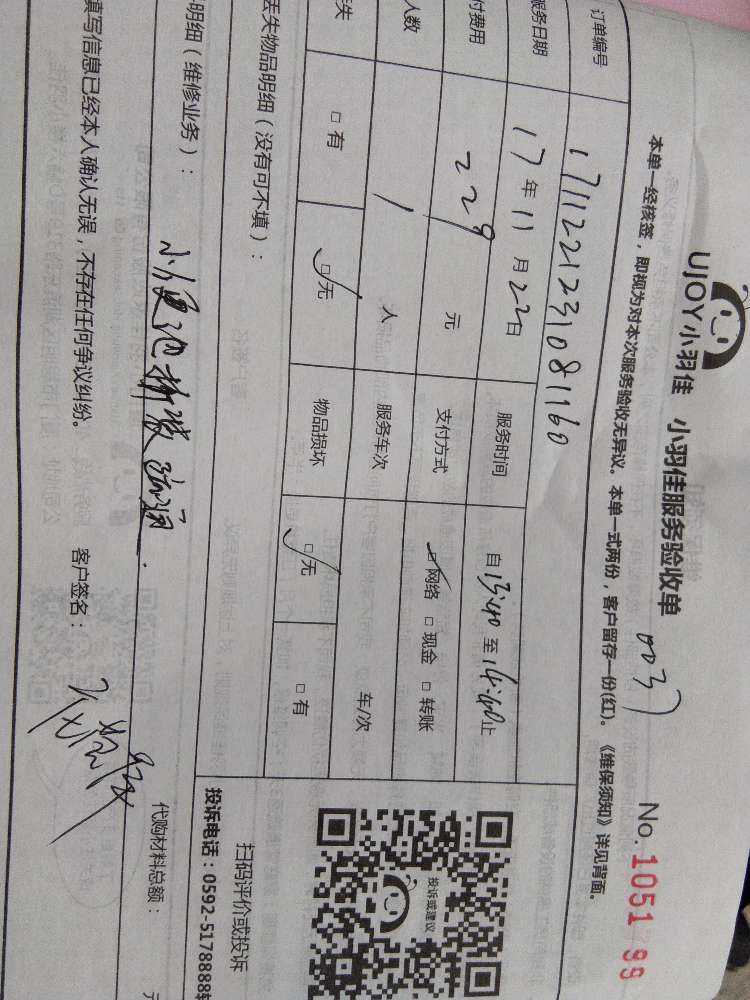 UJOY小羽佳 小羽佳服务验收单 0037 No. 1051199
本单一经核签，即视为对本次服务验收无异议。本单一式两份，客户留存一份(红)。《维保须知》详见背面。
订单编号 1711221231081160
服务日期 17年11月22日 服务时间 自13:40至14:40止
付费用 229元 支付方式 □网络 □现金 □转账
人数 1人 服务车次 车/次
失 □有 □无 物品损坏 □无 □有
丢失物品明细（没有可不填）：
明细（维修业务）： 小便池拆装疏通.
代购材料总额： 元
填写信息已经本人确认无误，不存在任何争议纠纷。 客户签名：
投诉或建议
扫码评价或投诉
投诉电话：0592-5178888转